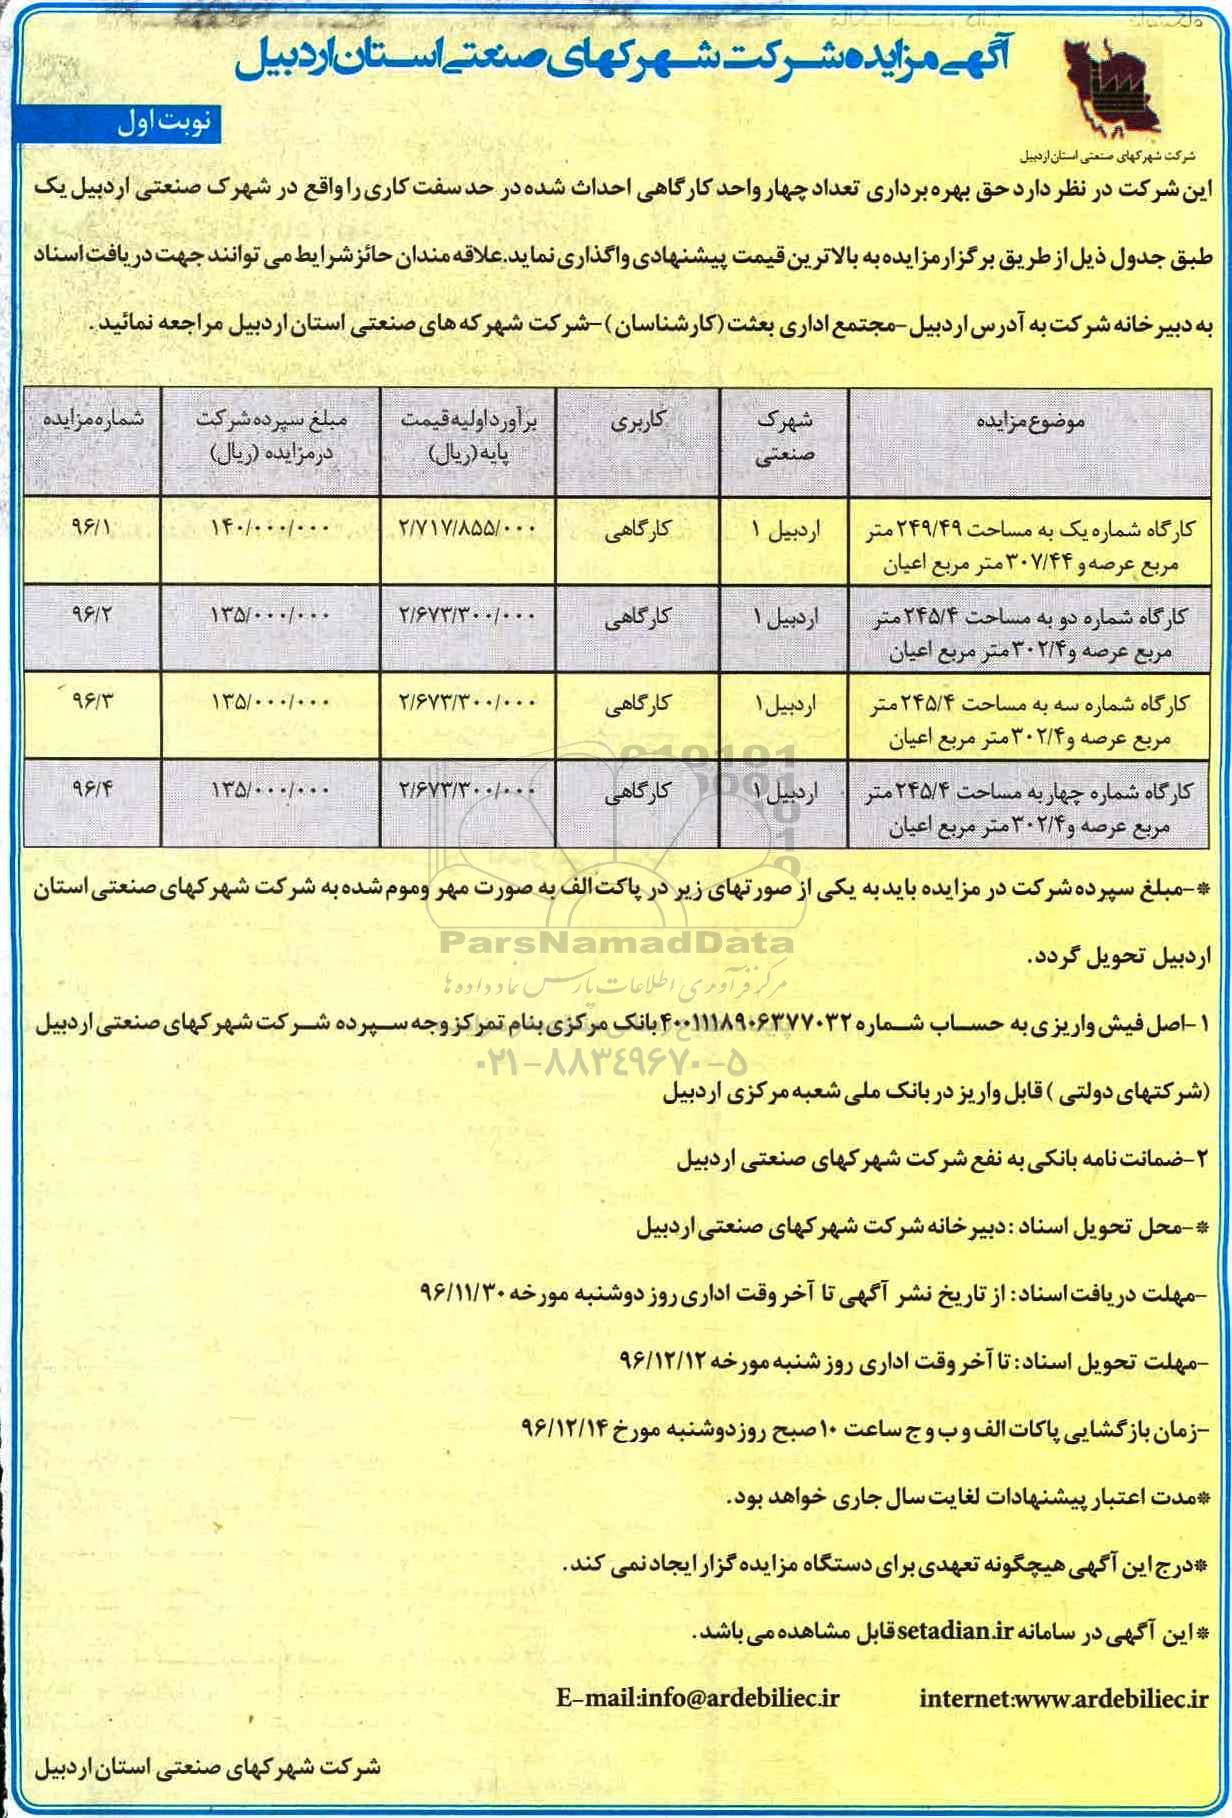 آگهی مزایده شرکت شهرکهای صنعتی استان اردبیل
شرکت شهرکهای صنعتی استان اردبیل
نوبت اول
این شرکت در نظر دارد حق بهره برداری تعداد چهار واحد کارگاهی احداث شده در حد سفت کاری را واقع در شهرک صنعتی اردبیل یک
طبق جدول ذیل از طریق برگزار مزایده به بالاترین قیمت پیشنهادی واگذاری نماید.علاقه مندان حائز شرایط می توانند جهت دریافت اسناد
به دبیرخانه شرکت به آدرس اردبیل-مجتمع اداری بعثت (کارشناسان)-شرکت شهرکه های صنعتی استان اردبیل مراجعه نمائید.
موضوع مزایده | شهرک صنعتی | کاربری | برآورد اولیه قیمت پایه(ریال) | مبلغ سپرده شرکت در مزایده (ریال) | شماره مزایده
کارگاه شماره یک به مساحت ۲۴۹/۴۹ متر مربع عرصه و ۳۰۷/۴۴ متر مربع اعیان | اردبیل ۱ | کارگاهی | ۲/۷۱۷/۸۵۵/۰۰۰ | ۱۴۰/۰۰۰/۰۰۰ | ۹۶/۱
کارگاه شماره دو به مساحت ۲۴۵/۴ متر مربع عرصه و ۳۰۲/۴ متر مربع اعیان | اردبیل ۱ | کارگاهی | ۲/۶۷۳/۳۰۰/۰۰۰ | ۱۳۵/۰۰۰/۰۰۰ | ۹۶/۲
کارگاه شماره سه به مساحت ۲۴۵/۴ متر مربع عرصه و ۳۰۲/۴ متر مربع اعیان | اردبیل ۱ | کارگاهی | ۲/۶۷۳/۳۰۰/۰۰۰ | ۱۳۵/۰۰۰/۰۰۰ | ۹۶/۳
کارگاه شماره چهار به مساحت ۲۴۵/۴ متر مربع عرصه و ۳۰۲/۴ متر مربع اعیان | اردبیل ۱ | کارگاهی | ۲/۶۷۳/۳۰۰/۰۰۰ | ۱۳۵/۰۰۰/۰۰۰ | ۹۶/۴
*-مبلغ سپرده شرکت در مزایده باید به یکی از صورتهای زیر در پاکت الف به صورت مهر و موم شده به شرکت شهرکهای صنعتی استان
ParsNamadData
اردبیل تحویل گردد.
مرکز فرآوری اطلاعات پارس نماد داده ها
۱-اصل فیش واریزی به حساب شماره ۴۰۰۱۱۱۸۹۰۶۳۷۷۰۳۲ بانک مرکزی بنام تمرکز وجه سپرده شرکت شهرکهای صنعتی اردبیل
۰۲۱-۸۸۳۴۹۶۷۰-۵
(شرکتهای دولتی ) قابل واریز در بانک ملی شعبه مرکزی اردبیل
۲-ضمانت نامه بانکی به نفع شرکت شهرکهای صنعتی اردبیل
*-محل تحویل اسناد :دبیرخانه شرکت شهرکهای صنعتی اردبیل
-مهلت دریافت اسناد: از تاریخ نشر آگهی تا آخر وقت اداری روز دوشنبه مورخه ۹۶/۱۱/۳۰
-مهلت تحویل اسناد: تا آخر وقت اداری روز شنبه مورخه ۹۶/۱۲/۱۲
-زمان بازگشایی پاکات الف و ب و ج ساعت ۱۰ صبح روز دوشنبه مورخ ۹۶/۱۲/۱۴
*مدت اعتبار پیشنهادات لغایت سال جاری خواهد بود.
*درج این آگهی هیچگونه تعهدی برای دستگاه مزایده گزار ایجاد نمی کند.
*این آگهی در سامانه setadian.ir قابل مشاهده می باشد.
internet:www.ardebiliec.ir E-mail:info@ardebiliec.ir
شرکت شهرکهای صنعتی استان اردبیل